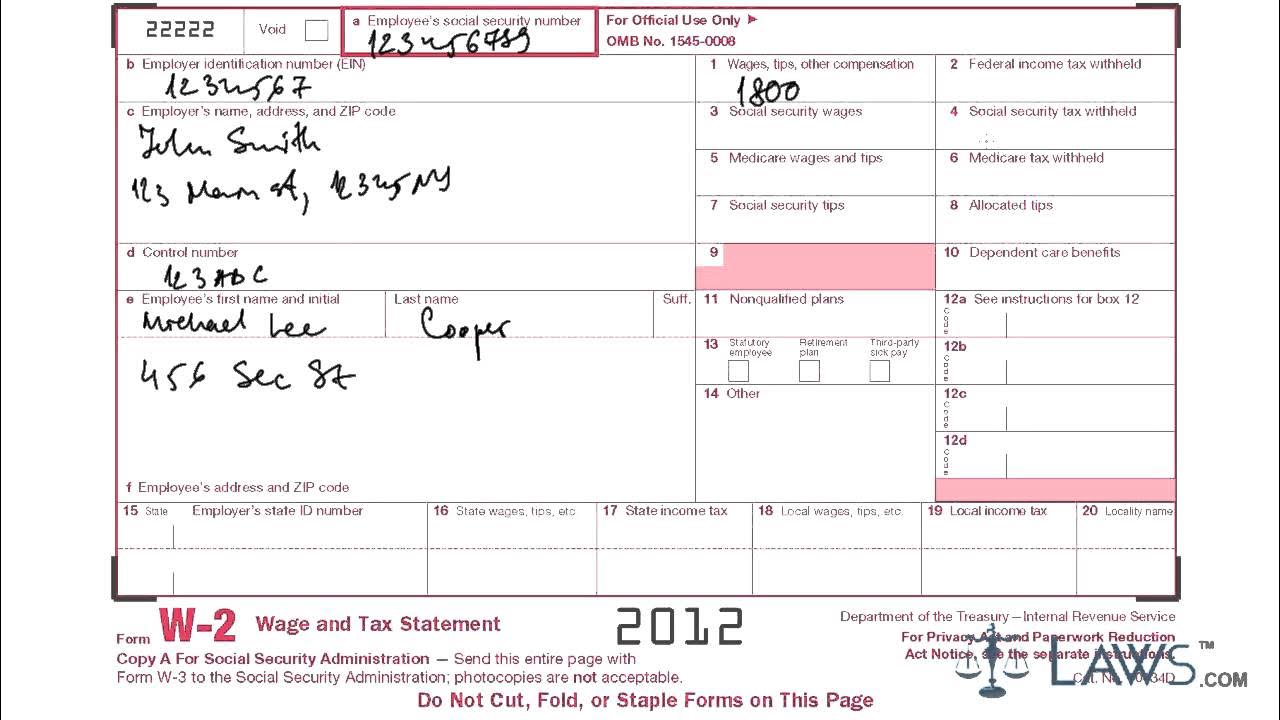 22222
Void
a Employee's social security number
123456789
For Official Use Only ►
OMB No. 1545-0008
b Employer identification number (EIN)
1234567
1 Wages, tips, other compensation
1800
2 Federal income tax withheld
c Employer's name, address, and ZIP code
John Smith
123 Main st, 12345 NY
3 Social security wages
4 Social security tax withheld
5 Medicare wages and tips
6 Medicare tax withheld
7 Social security tips
8 Allocated tips
d Control number
123 ABC
9
10 Dependent care benefits
e Employee's first name and initial
Michael Lee
Last name
Cooper
Suff.
11 Nonqualified plans
12a See instructions for box 12
Code
456 Sec St
13 Statutory employee
Retirement plan
Third-party sick pay
12b
Code
14 Other
12c
Code
12d
Code
f Employee's address and ZIP code
15 State
Employer's state ID number
16 State wages, tips, etc.
17 State income tax
18 Local wages, tips, etc.
19 Local income tax
20 Locality name
Form W-2 Wage and Tax Statement
2012
Department of the Treasury—Internal Revenue Service
For Privacy Act and Paperwork Reduction
Act Notice, see the separate instructions.
Copy A For Social Security Administration — Send this entire page with
Form W-3 to the Social Security Administration; photocopies are not acceptable.
Cat. No.
Do Not Cut, Fold, or Staple Forms on This Page
LAWS™.COM